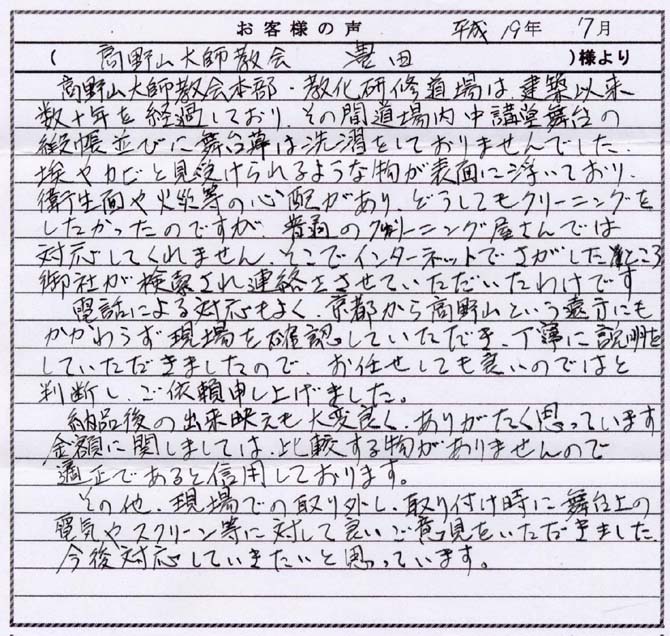 お客様の声 平成19年 7月
( 高野山大師教会 豊田 )様より
高野山大師教会本部・教化研修道場は、建築以来
数十年を経過しており、その間道場内中講堂舞台の
緞帳並びに舞台幕は洗濯をしておりませんでした。
埃やカビと見受けられるような物が表面に浮いており、
衛生面や火災等の心配があり どうしてもクリーニングを
したかったのですが、普通のクリーニング屋さんでは
対応してくれません。そこでインターネットでさがしたところ
御社が検索され連絡をさせていただいたわけです
電話による対応もよく、京都から高野山という遠方にも
かかわらず現場を確認していただき、丁寧に説明を
していただきましたので、お任せしても良いのではと
判断し、ご依頼申し上げました。
納品後の出来映えも大変良く、ありがたく思っています
金額に関しましては、比較する物がありませんので
適正であると信用しております。
その他、現場での取り外し、取り付け時に舞台上の
電気やスクリーン等に対して良いご意見をいただきました。
今後対応していきたいと思っています。